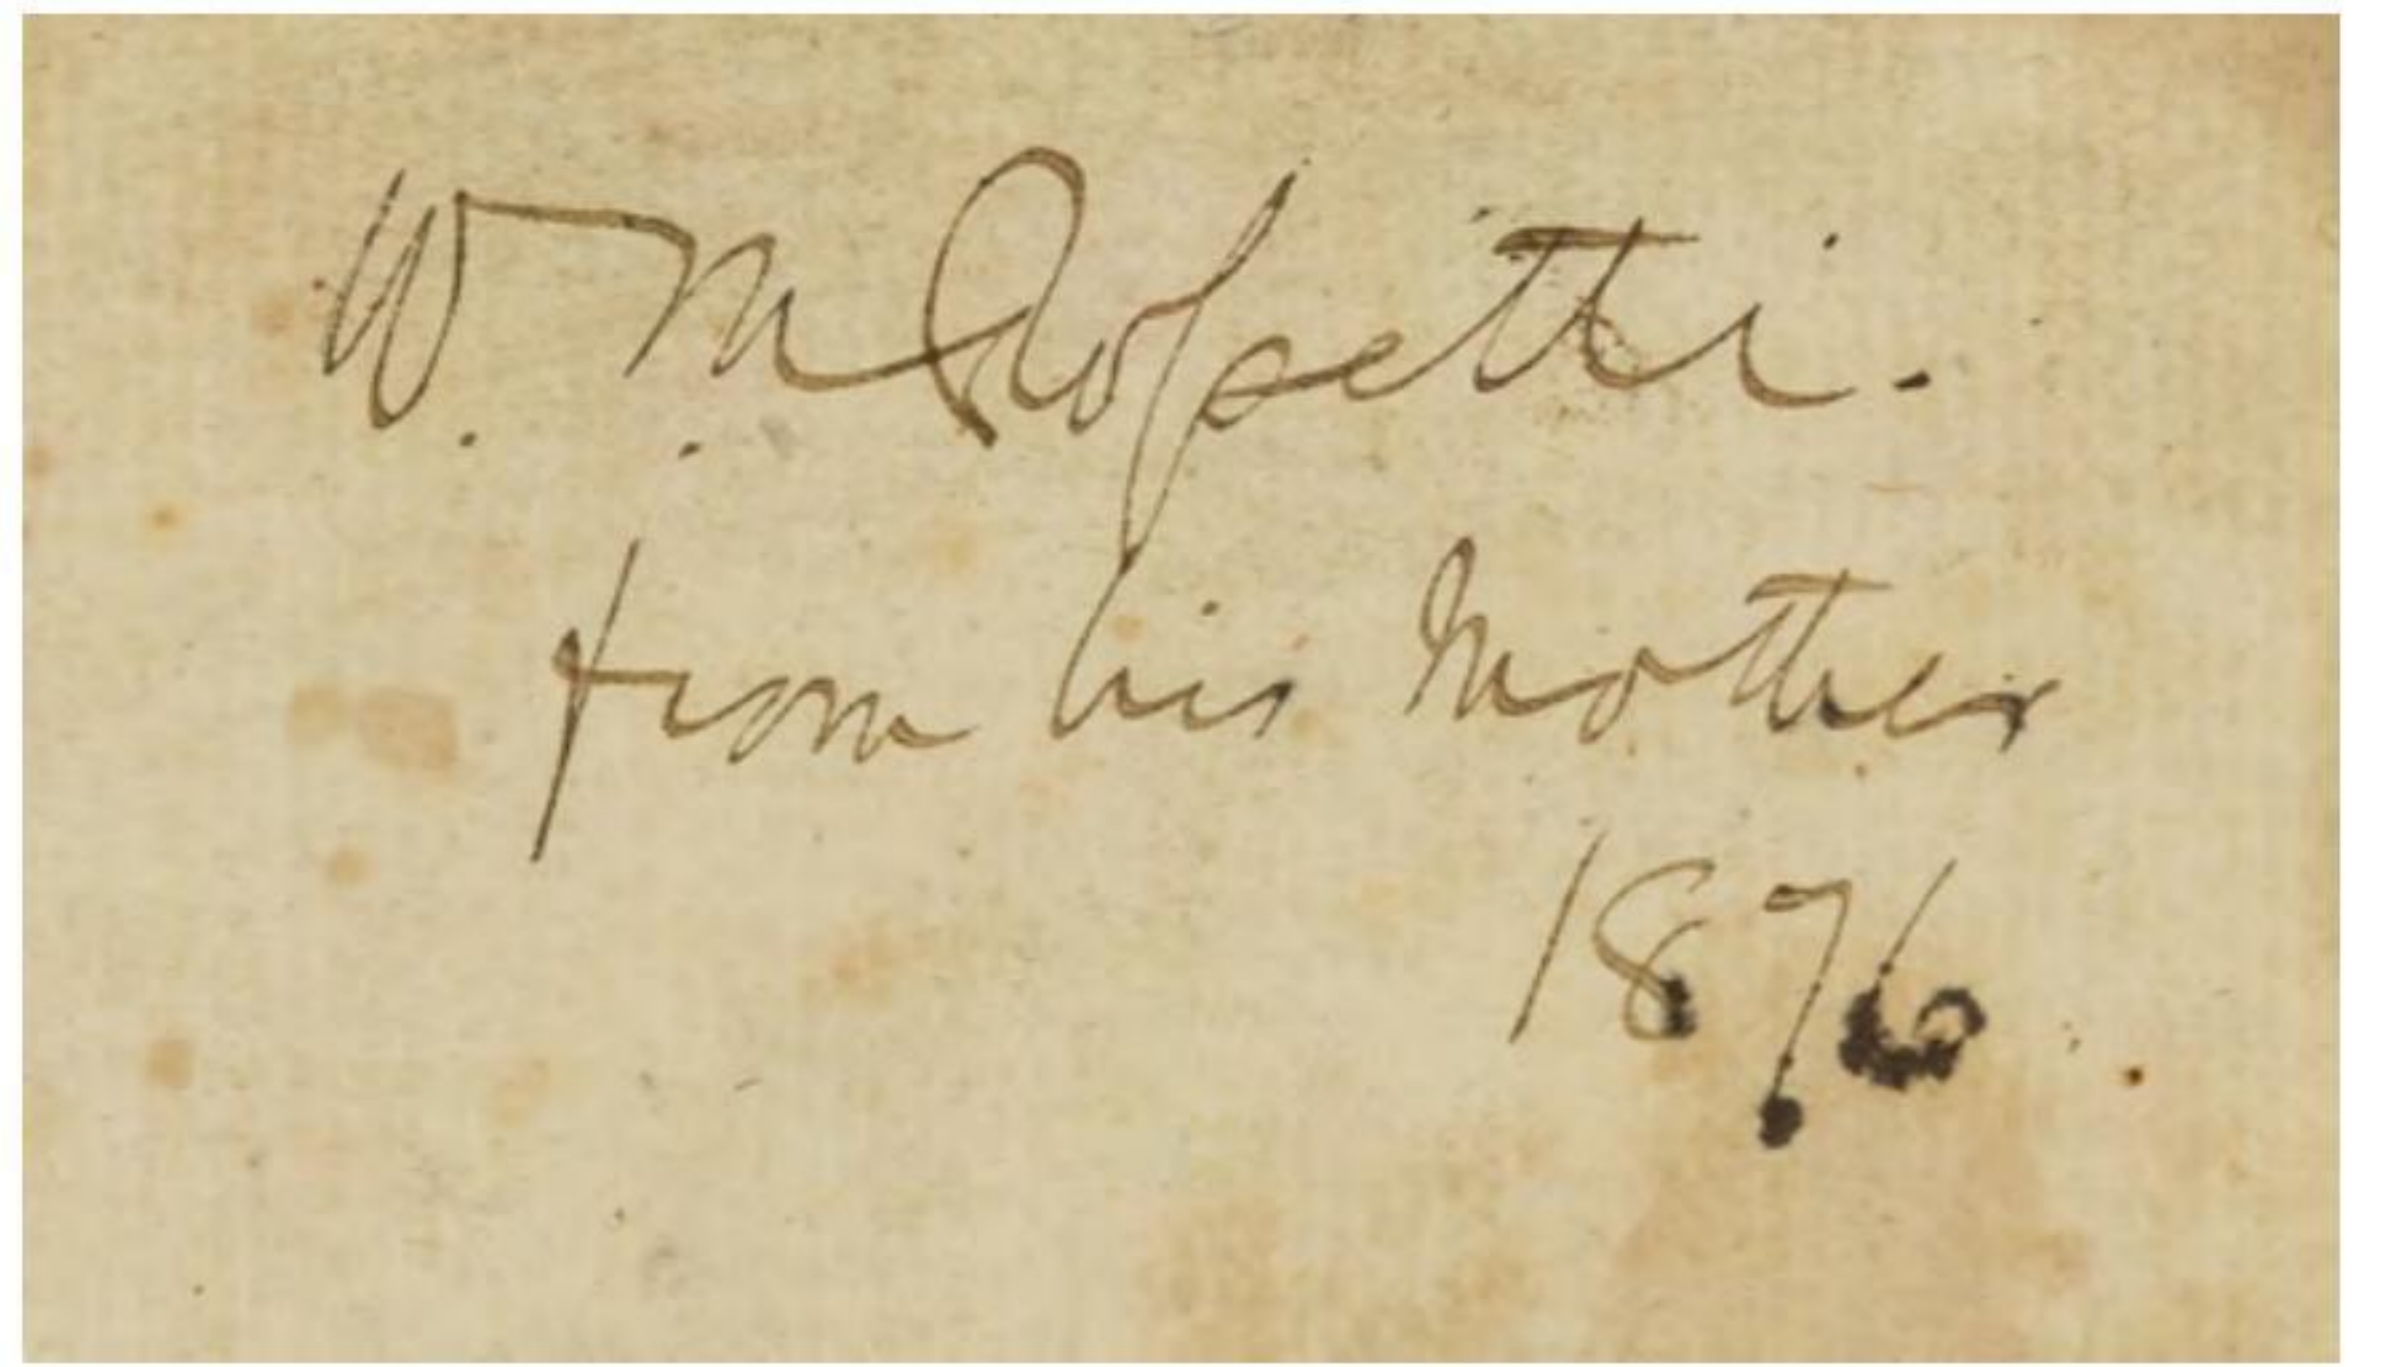 W. M. Rossetti.
from his Mother
1876.